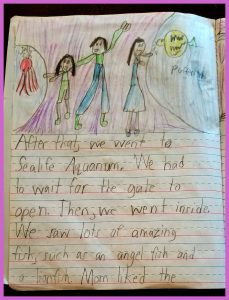 After that, we went to
Sealife Aquarium. We had
to wait for the gate to
open. Then, we went inside.
We saw lots of amazing
fish, such as an angel fish and
a lionfish. Mom liked the